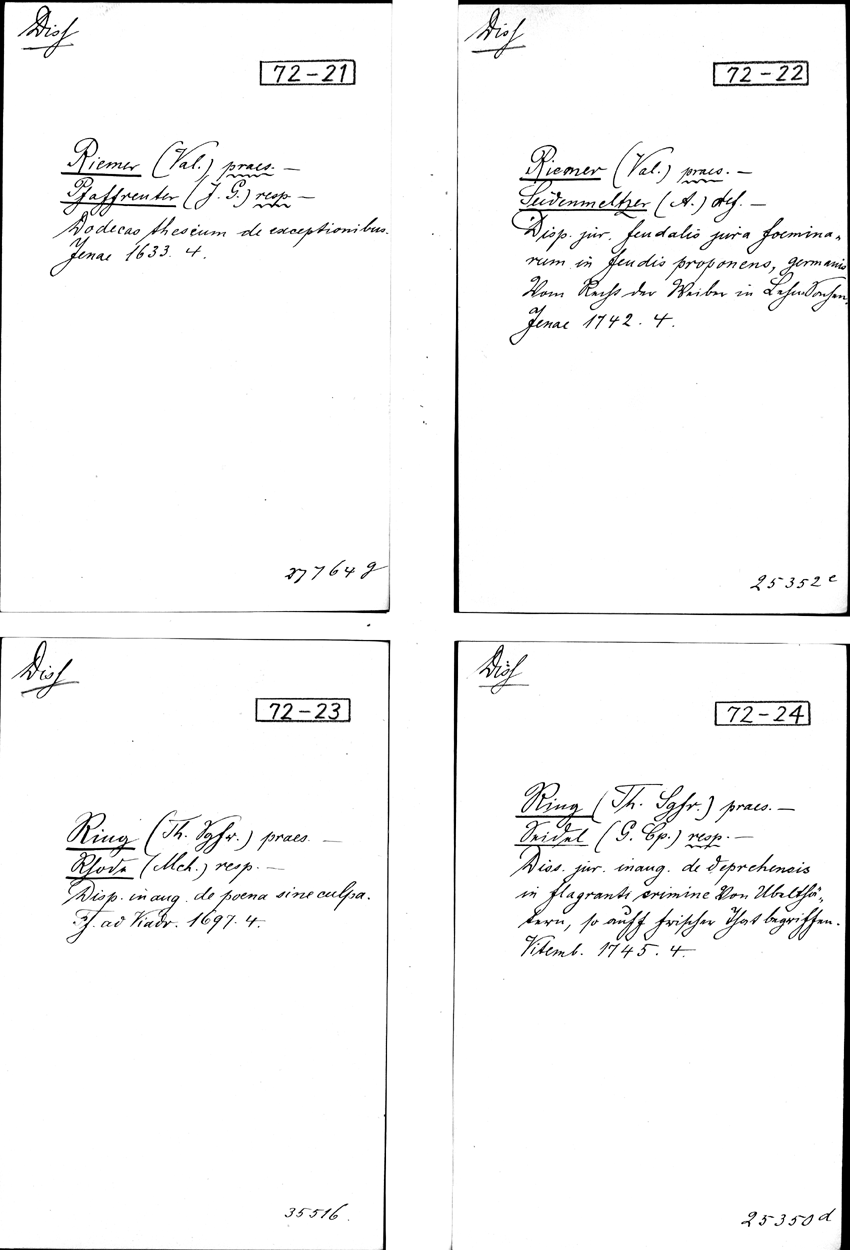 Diss
72-21
Riemer (Val.) praes. —
Pfaffreuter (J. G.) resp —
Dodecas thesium de exceptionibus.
Jenae 1633. 4.
27764 g
Diss
72-22
Riemer (Val.) praes. —
Seidenmeltzer (A.) def. —
Disp. jur. feudalis jura foemina-
rum in feudis proponens, germanis
Vom Recht der Weiber in LehnsSachen.
Jenae 1742. 4.
25352 e
Diss
72-23
Ring (Th. Sgfr.) praes. —
Rhode (Mch.) resp. —
Disp. inaug. de poena sine culpa.
Ff. ad Viadr. 1697. 4.
35516.
Diss
72-24
Ring (Th. Sgfr.) praes. —
Seidel (G. Cp.) resp. —
Diss. jur. inaug. de deprehensis
in flagranti crimine Von Ubelthä-
tern, so auff frischer That begriffen.
Vitemb. 1745. 4.
25350 d